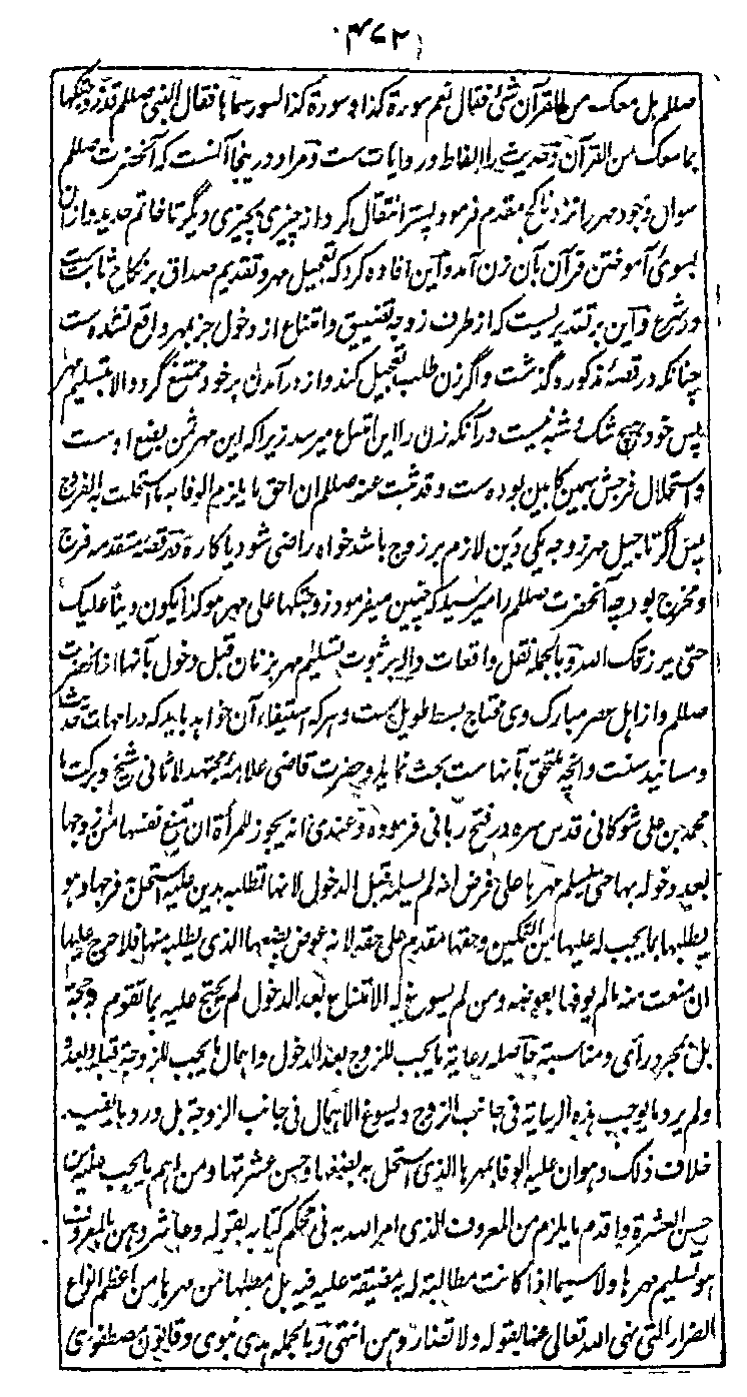 ۴۷۲
صللم بل معک من القرآن شیٔ فقال نعم سورة کذا و سورة کذا لسور سماها فقال النبی صللم قد زوجتکها
بما معک من القرآن و حدیث را الفاظ و روایات ست و مراد درینجا آنست که آنحضرت صللم
سوال وجود مهر را نزد ناکح مقدم فرمود پستر انتقال کرد از چیزی بچیزی دیگر تا خاتم حدید و ازان
بسوی آموختن قرآن بآن زن آمد و این افاده کرد که تعجیل مهر و تقدیم صداق بر نکاح ثابت ست
در شرع و این بر تقدیریست که از طرف زوجه تضییق و امتناع از دخول جز بمهر واقع نشده ست
چنانکه در قصهٔ مذکوره گذشت و اگر زن طلب تعجیل کند و از درآمدن بر خود ممتنع گردد الا بتسلیم مهر
پس خود هیچ شک و شبه نیست در آنکه زن را این امتناع میرسد زیرا که این مهر ثمن بضع اوست
و استحلال فرجش بهمین کابین بوده ست و قد ثبت عنه صللم ان احق ما یلزم الوفا به ما استحلت به الفروج
پس اگر تاجیل مهر زوجه یکی دین لازم بر زوج باشد خواه راضی شود یا کاره در قصهٔ متقدمه فرج
و مخرج بود چه آنحضرت صللم را میرسید که چنین میفرمود زوجتکها علی مهر هو کذا یکون دینا علیک
حتی یرزقک الله و بالجمله نقل واقعات داله بر ثبوت تسلیم مهر بزنان قبل دخول بآنها از آنحضرت
صللم و از اهل عصر مبارک وی محتاج بسط طویل ست و هر که استیفاء آن خواهد باید که در امهات حدیث
و مسانید سنت و آنچه ملتحق بآنهاست بحث نماید و حضرت قاضی علامهٔ مجتهد لاثانی شیخ و برکت ما
محمد بن علی شوکانی قدس سره در فتح ربانی فرموده و عندی انه یجوز للمرأة ان تمنع نفسها من زوجها
بعد دخوله بها حتی یسلم مهرها علی فرض انه لم یسلمه قبل الدخول لانها تطلبه بدین علیه استحل به فرجها و هو
یطلبها بما یجب له علیها من التمکین و حقها مقدم علی حقه لانه عوض بضعها الذی یطلبه منها فلا حرج علیها
ان منعت منه ما لم یوفها بعوضه و من لم یسوغ له الامتناع بعد الدخول لم یحتج علیه بما تقوم به حجة
بل بمجرد رأی و مناسبة حاصله رعایة ما یجب للزوج بعد الدخول و اهمال ما یجب للزوجة قبله و بعده
و لم یرد ما یوجب هذه الرعایة فی جانب الزوج و یسوغ الاهمال فی جانب الزوجة بل ورد ما یفید
خلاف ذلک و هو ان علیه الوفا بمهرها الذی استحل به بضعها و حسن عشرتها و من اهم ما یجب علیه من
حسن العشرة و اقدم ما یلزم من المعروف الذی امر الله به فی محکم کتابه بقوله و عاشروهن بالمعروف
هو تسلیم مهرها و لا سیما اذا کانت مطالبة له به مضیقة علیه فیه بل مطلها من مهرها من اعظم انواع
الضرار التی نهی الله تعالی عنها بقوله و لا تضاروهن انتهی و بالجمله هدی نبوی و قانون مصطفوی